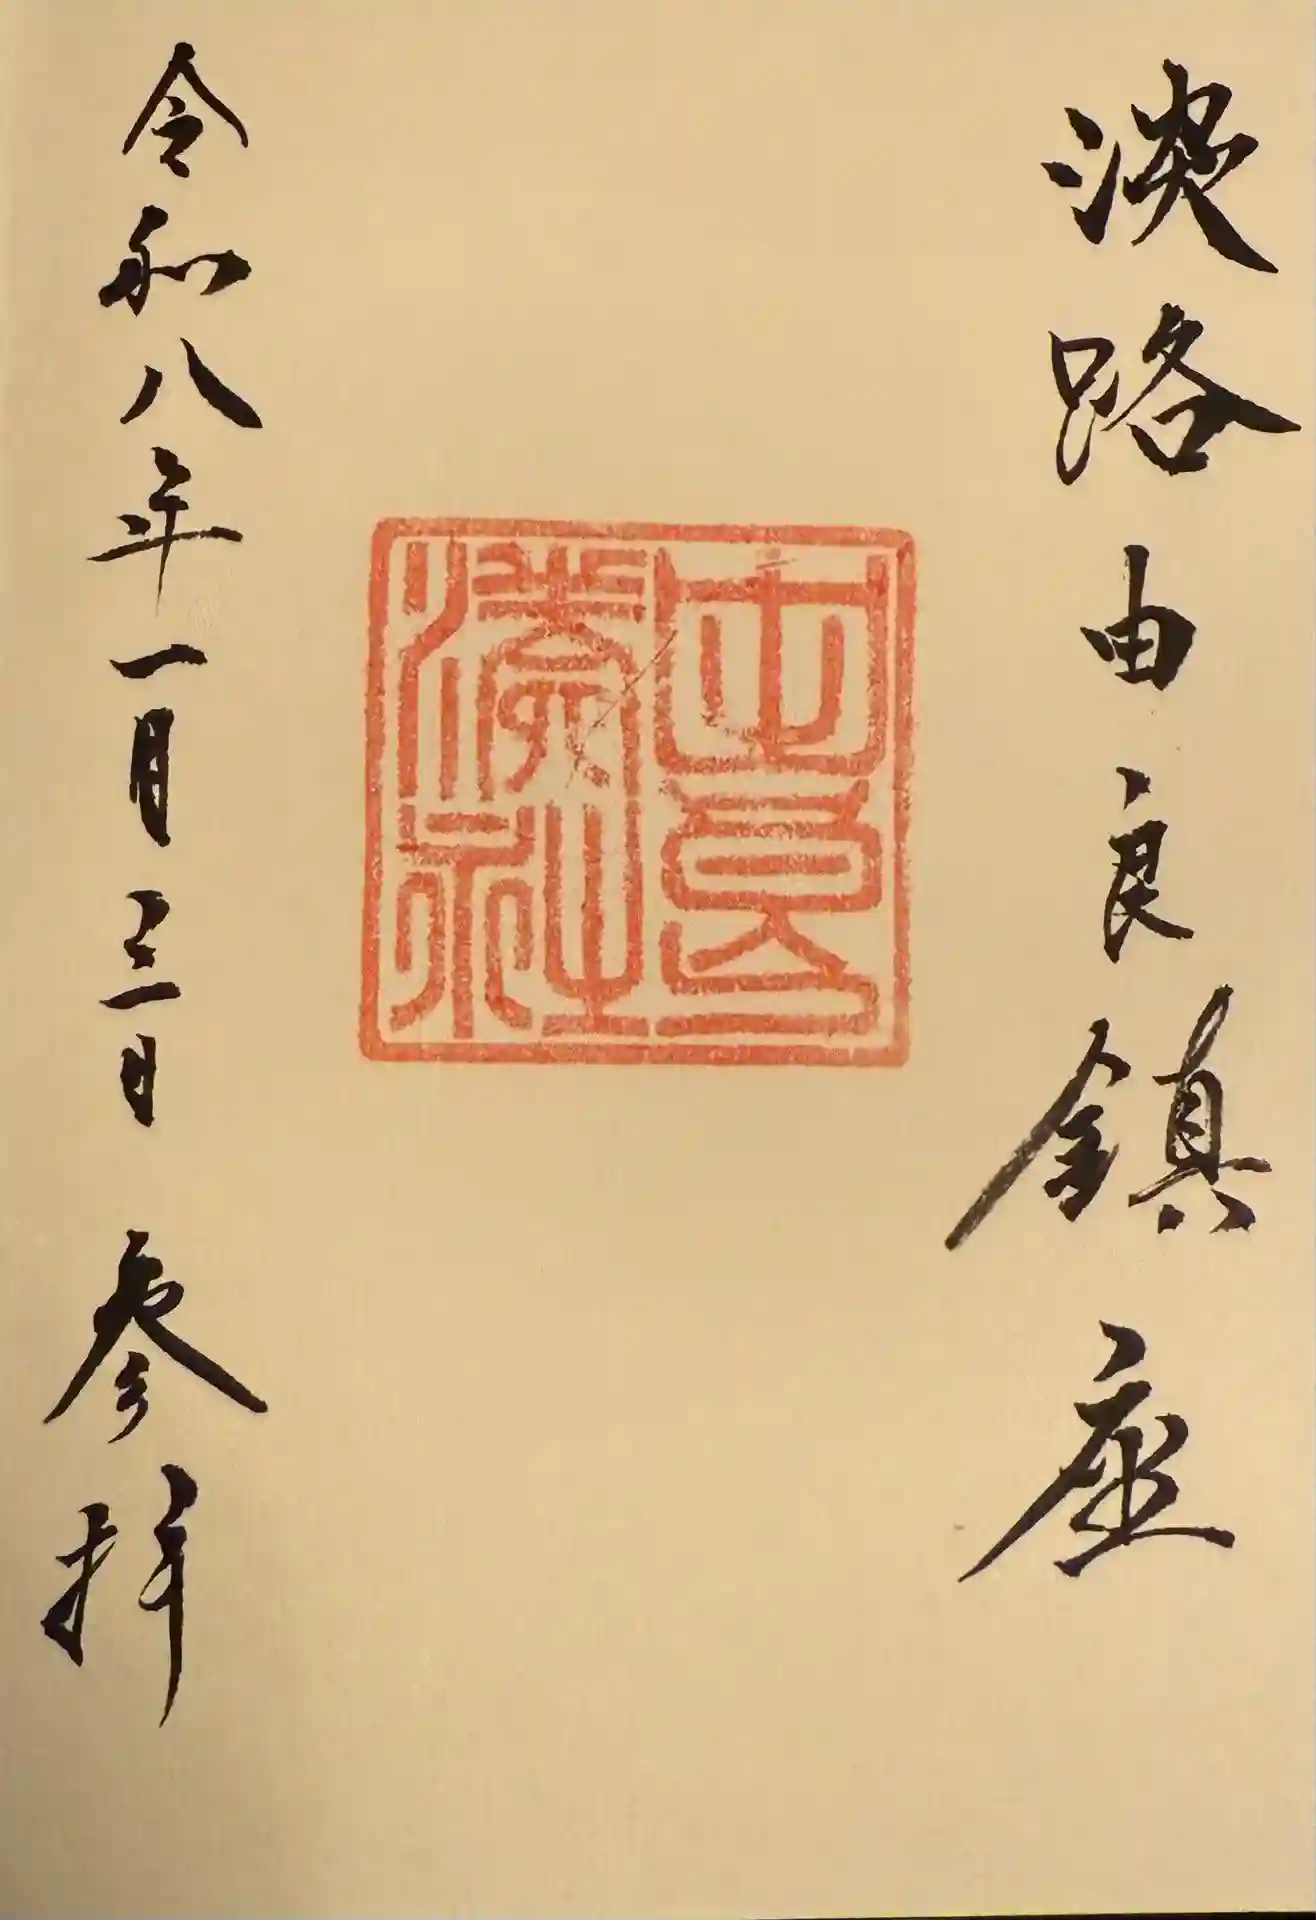 淡路由良鎮座
由良
湊社
令和八年一月三日 参拝